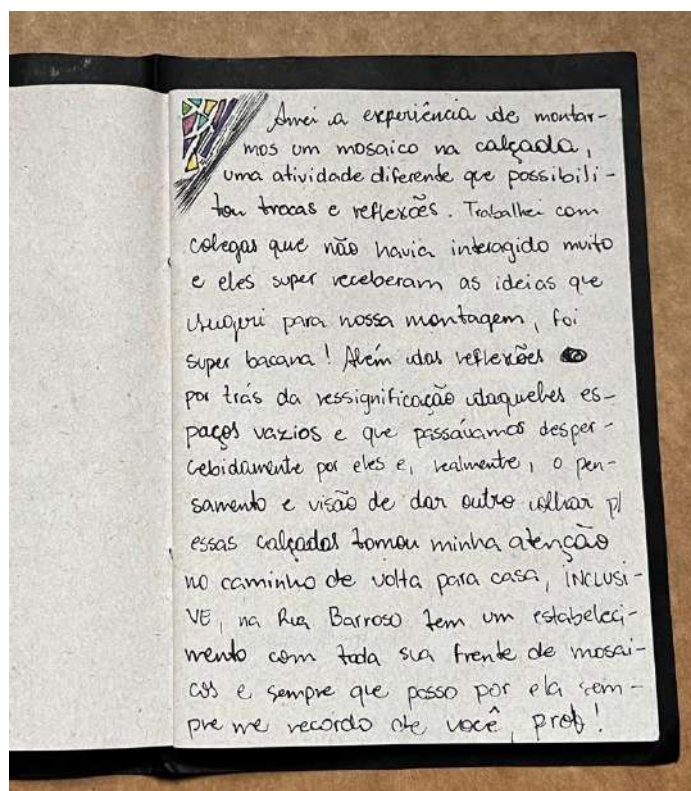 Amei a experiência de montar-
mos um mosaico na calçada,
uma atividade diferende que possibili-
tou trocas e reflexões. Trabalhei com
colegas que não havia interagido muito
e eles super receberam as ideias que
sugeri para nossa montagem, foi
super bacana! Além das reflexões
por trás da ressignificação daqueles es-
paços vazios e que passávamos desper-
cebidamente por eles e, realmente, o pen-
samento e visão de dar outro olhar p/
essas calçadas tomou minha atenção
no caminho de volta para casa, INCLUSI-
VE, na Rua Barroso tem um estabeleci-
mento com toda sua frente de mosai-
cos e sempre que passo por ela sem-
pre me recordo de você, prof!